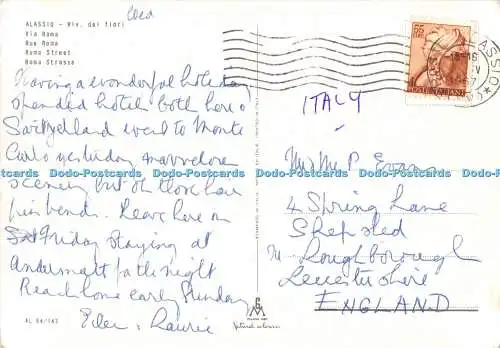 Coco
ALASSIO - Riv. dei fiori
Via Roma
Rue Roma
Roma Street
Roma Strasse
Having a wonderful holiday
splendid hotels both here &
Switzerland went to Monte
Carlo yesterday marvelous
scenery but oh those hair
pin bends. Leave here on
Friday staying at
Andermatt for the night
Reach home early Sunday
Laurie
AL 84/143
55
LIRE
POSTE ITALIANE
ALASSIO
ITALY
Mr & Mrs P. Evans
4 Spring Lane
Shepshed
Nr Loughborough
Leicestershire
ENGLAND
Dodo-Postcards Dodo-Postcards Dodo-Postcards Dodo-Postcards